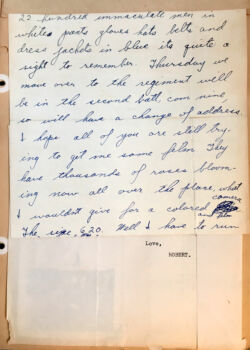 22 hundred immaculate men in
white pants gloves hats belts and
dress jackets in blue its quite a
sight to remember. Thursday we
move over to the regiment well
be in the second batt, com nine
so will have a change of address.
I hope all of you are still try-
ing to get me some film They
have thousands of roses bloom-
ing now all over the place, what
I wouldn't give for a colored camera
and film
The size, 620. Well I have to run
Love,
ROBERT.